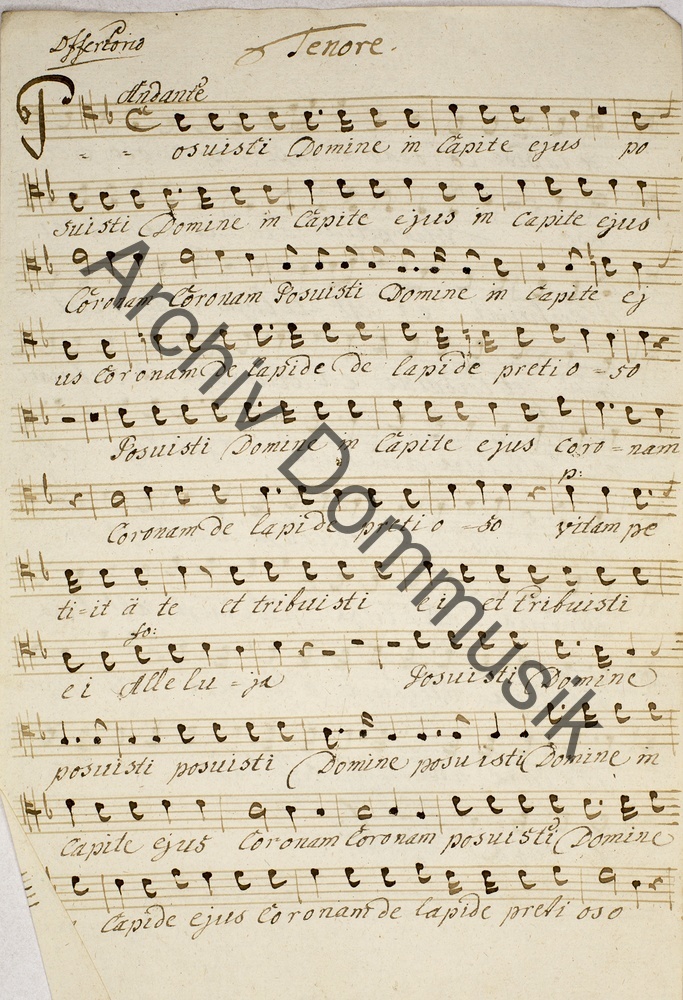 Offertorio
Tenore.
Andante
Posuisti Domine in Capite ejus po
suisti Domine in Capite ejus in Capite ejus
Coronam Coronam Posuisti Domine in Capite ej
us Coronam de lapide de lapide pretio = so
Posuisti Domine in Capite ejus Coro = nam
p:
Coronam de lapide pretio = so vitam pe
ti = it à te et tribuisti ei et tribuisti
fo:
ei Allelu = ja Posuisti Domine
posuisti posuisti Domine posuisti Domine in
Capite ejus Coronam Coronam posuisti Domine
Capide ejus Coronam de lapide preti oso
Archiv Dommusik